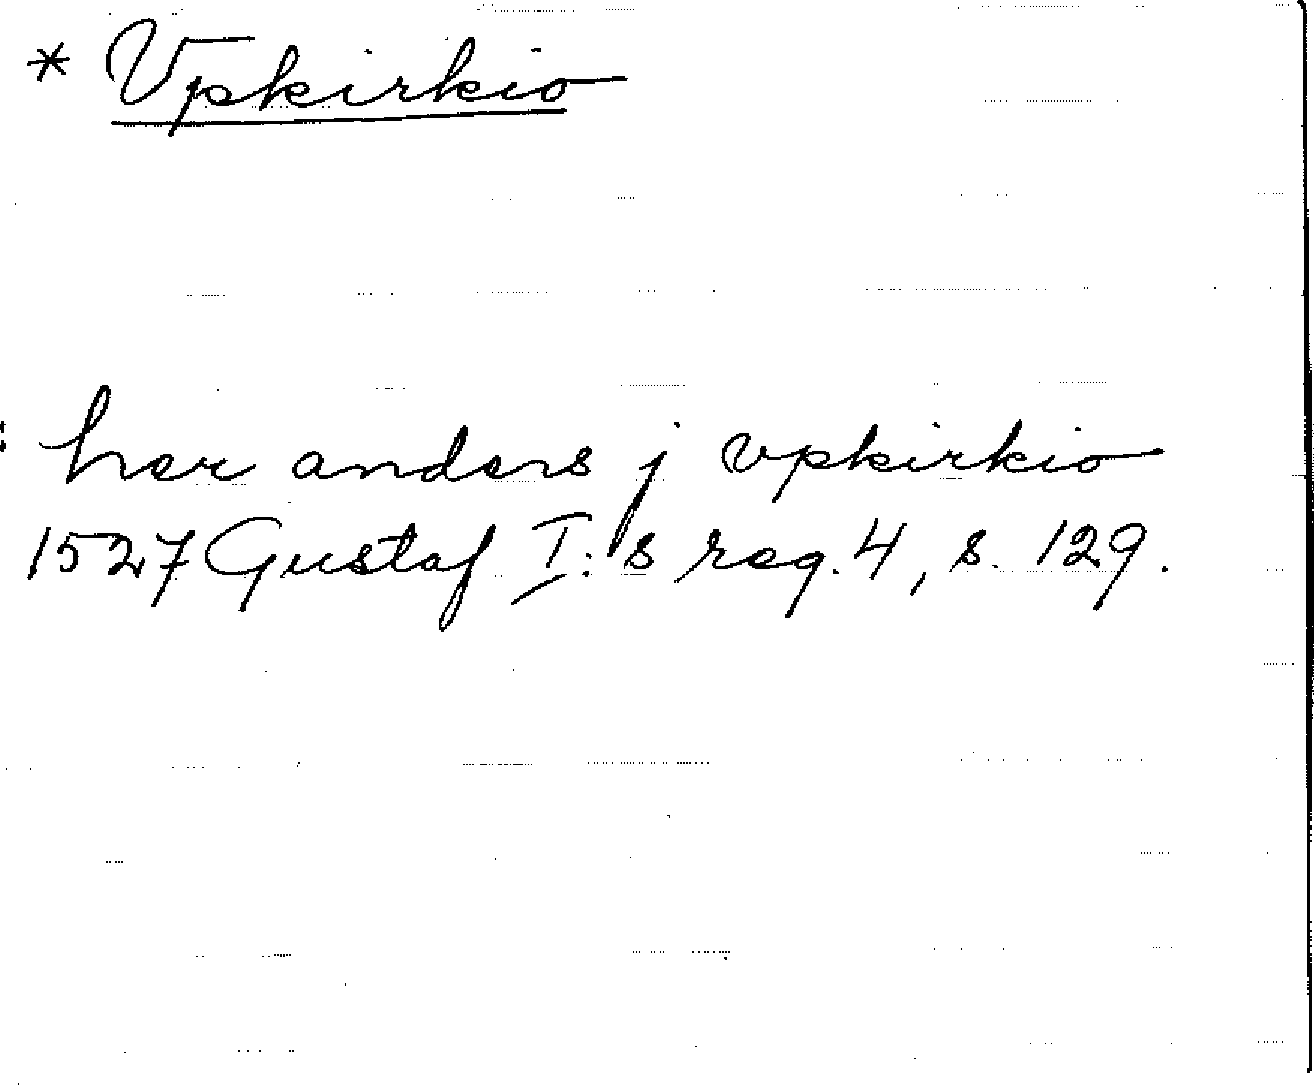 * Vpkirkio
: her anders j vpkirkio
1527 Gustaf I:s reg. 4, s. 129.